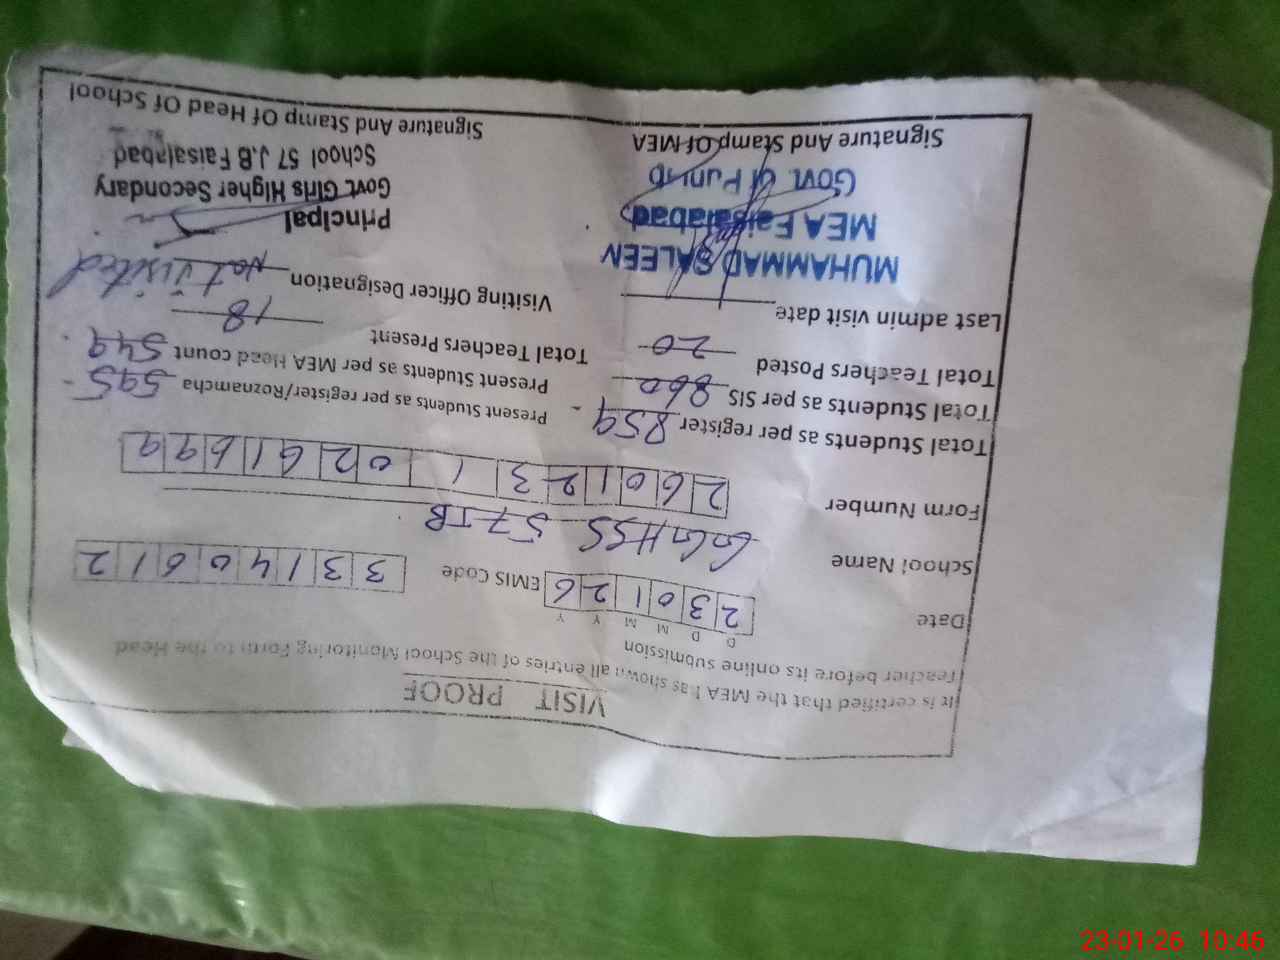 VISIT PROOF
It is certified that the MEA has shown all entries of the School Monitoring Form to the Head
Teacher before its online submission
D D M M Y Y
Date 2 3 0 1 2 6 EMIS Code 3 3 1 4 0 6 1 2
School Name GGHSS 57 JB
Form Number 2 6 0 1 2 3 1 0 2 6 1 6 9 9
Total Students as per register 859 Present Students as per register/Roznamcha 595
Total Students as per SIS 860 Present Students as per MEA Head count 549
Total Teachers Posted 20 Total Teachers Present 18
Last admin visit date Visiting Officer Designation Not visited
MUHAMMAD SALEEM
MEA Faisalabad
Govt. of Punjab
Principal
Govt. Girls Higher Secondary
School 57 J.B Faisalabad
Signature And Stamp Of MEA Signature And Stamp Of Head Of School
23-01-26 10:46